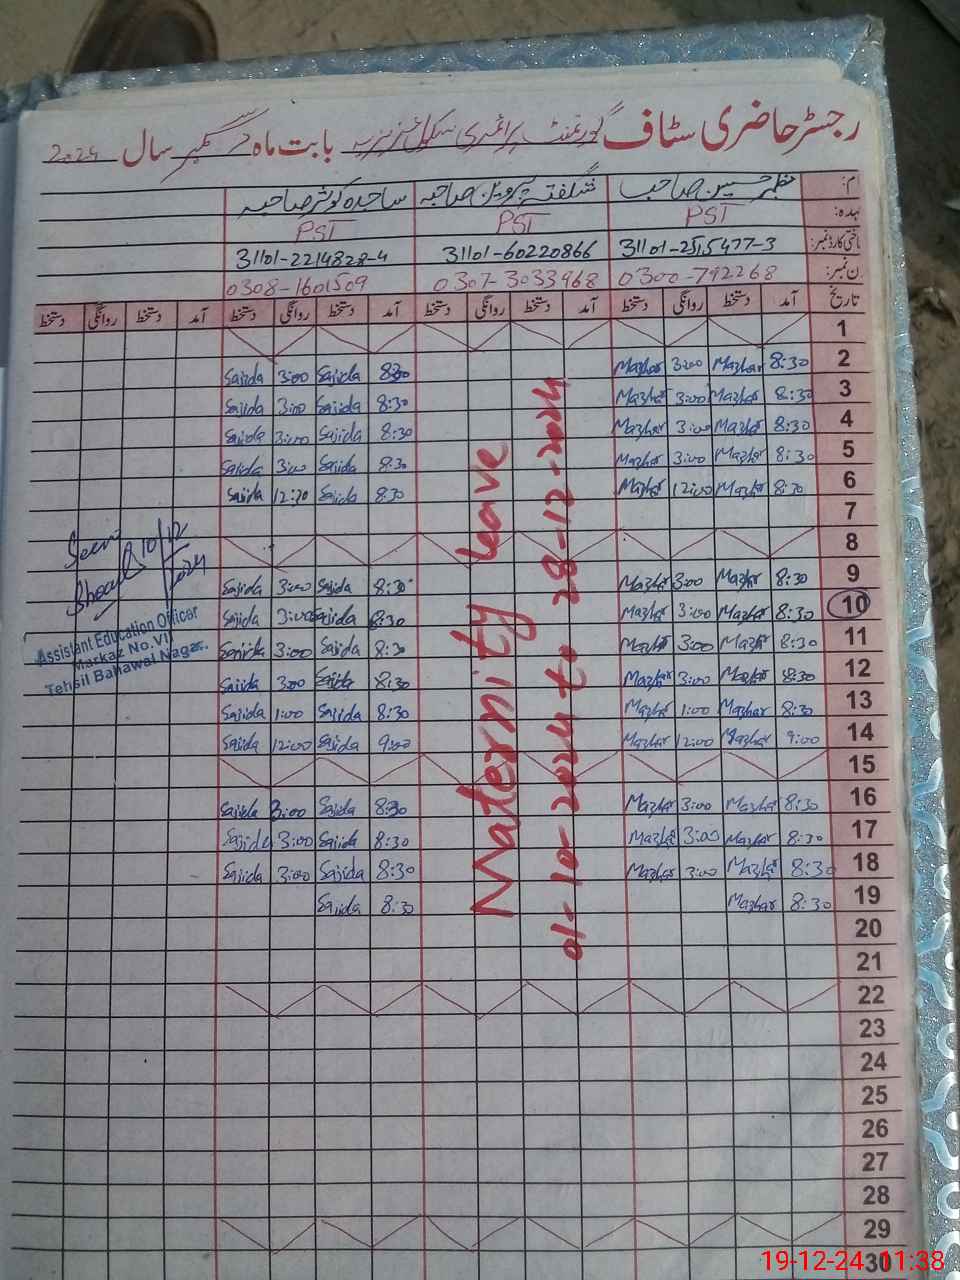 رجسٹر حاضری سٹاف گورنمنٹ پرائمری سکول عزیزیہ بابت ماہ دسمبر سال 2024
نام: مظہر حسین صاحب شگفتہ پروین صاحبہ ساجدہ کوثر صاحبہ
عہدہ: PST PST PST
شناختی کارڈ نمبر: 31101-2515477-3 31101-60220866 31101-2214828-4
فون نمبر: 0300-792268 0307-3033968 0308-1601509
تاریخ آمد دستخط روانگی دستخط آمد دستخط روانگی دستخط آمد دستخط روانگی دستخط آمد دستخط روانگی دستخط
1
2 8:30 Mazhar 3:00 Mazhar 8:30 Sajida 3:00 Sajida
3 8:30 Mazhar 3:00 Mazhar 8:30 Sajida 3:00 Sajida
4 8:30 Mazhar 3:00 Mazhar 8:30 Sajida 3:00 Sajida
5 8:30 Mazhar 3:00 Mazhar 8:30 Sajida 3:00 Sajida
6 8:30 Mazhar 12:00 Mazhar 8:30 Sajida 12:30 Sajida
7
8
9 8:30 Mazhar 3:00 Mazhar 8:30 Sajida 3:00 Sajida
10 8:30 Mazhar 3:00 Mazhar 8:30 Sajida 3:00 Sajida
11 8:30 Mazhar 3:00 Mazhar 8:30 Sajida 3:00 Sajida
12 8:30 Mazhar 3:00 Mazhar 8:30 Sajida 3:00 Sajida
13 8:30 Mazhar 1:00 Mazhar 8:30 Sajida 1:00 Sajida
14 9:00 Mazhar 12:00 Mazhar 9:00 Sajida 12:00 Sajida
15
16 8:30 Mazhar 3:00 Mazhar 8:30 Sajida 3:00 Sajida
17 8:30 Mazhar 3:00 Mazhar 8:30 Sajida 3:00 Sajida
18 8:30 Mazhar 3:00 Mazhar 8:30 Sajida 3:00 Sajida
19 8:30 Mazhar 8:30 Sajida
20
21
22
23
24
25
26
27
28
29
30
Maternity leave
01-10-2024 to 28-12-2024
Seen
10/12
2024
Assistant Education Officer
Markaz No.VII
Tehsil Bahawal Nagar.
19-12-24 11:38